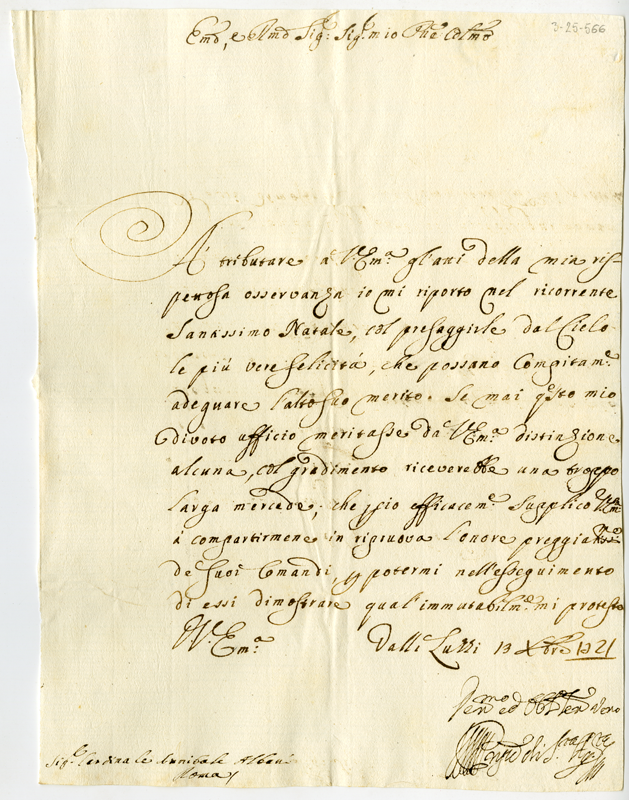 3-25-566
Em̃o, e R̃mo Sig.e Sig.e mio P̃ne Colm̃o
A' tributare a' V.Em.a gl'atti della mia ris-
pettosa osservanza io mi riporto nel ricorrente
Santissimo Natale, col presaggirle dal Cielo
le più vere felicità, che possano Compitam.e
adeguare l'alto suo merito. Se mai q̃sto mio
divoto ufficio meritasse da V.Em.a distinzione
alcuna, col gradimento riceverebbe una troppo
larga mercede; che p̱ciò efficacem.e supplico V.Em.a
à compartirmene in ripruova l'onore preggiatiss.o
de' suoi Comandi, p̱ potermi nell'esseguimento
di essi dimostrare qual'immutabilm.e mi protesto
V.Em.a
Dalli Luzzi 13 Xbre 1721
Sig.e Cardinale Annibale Albani
Roma